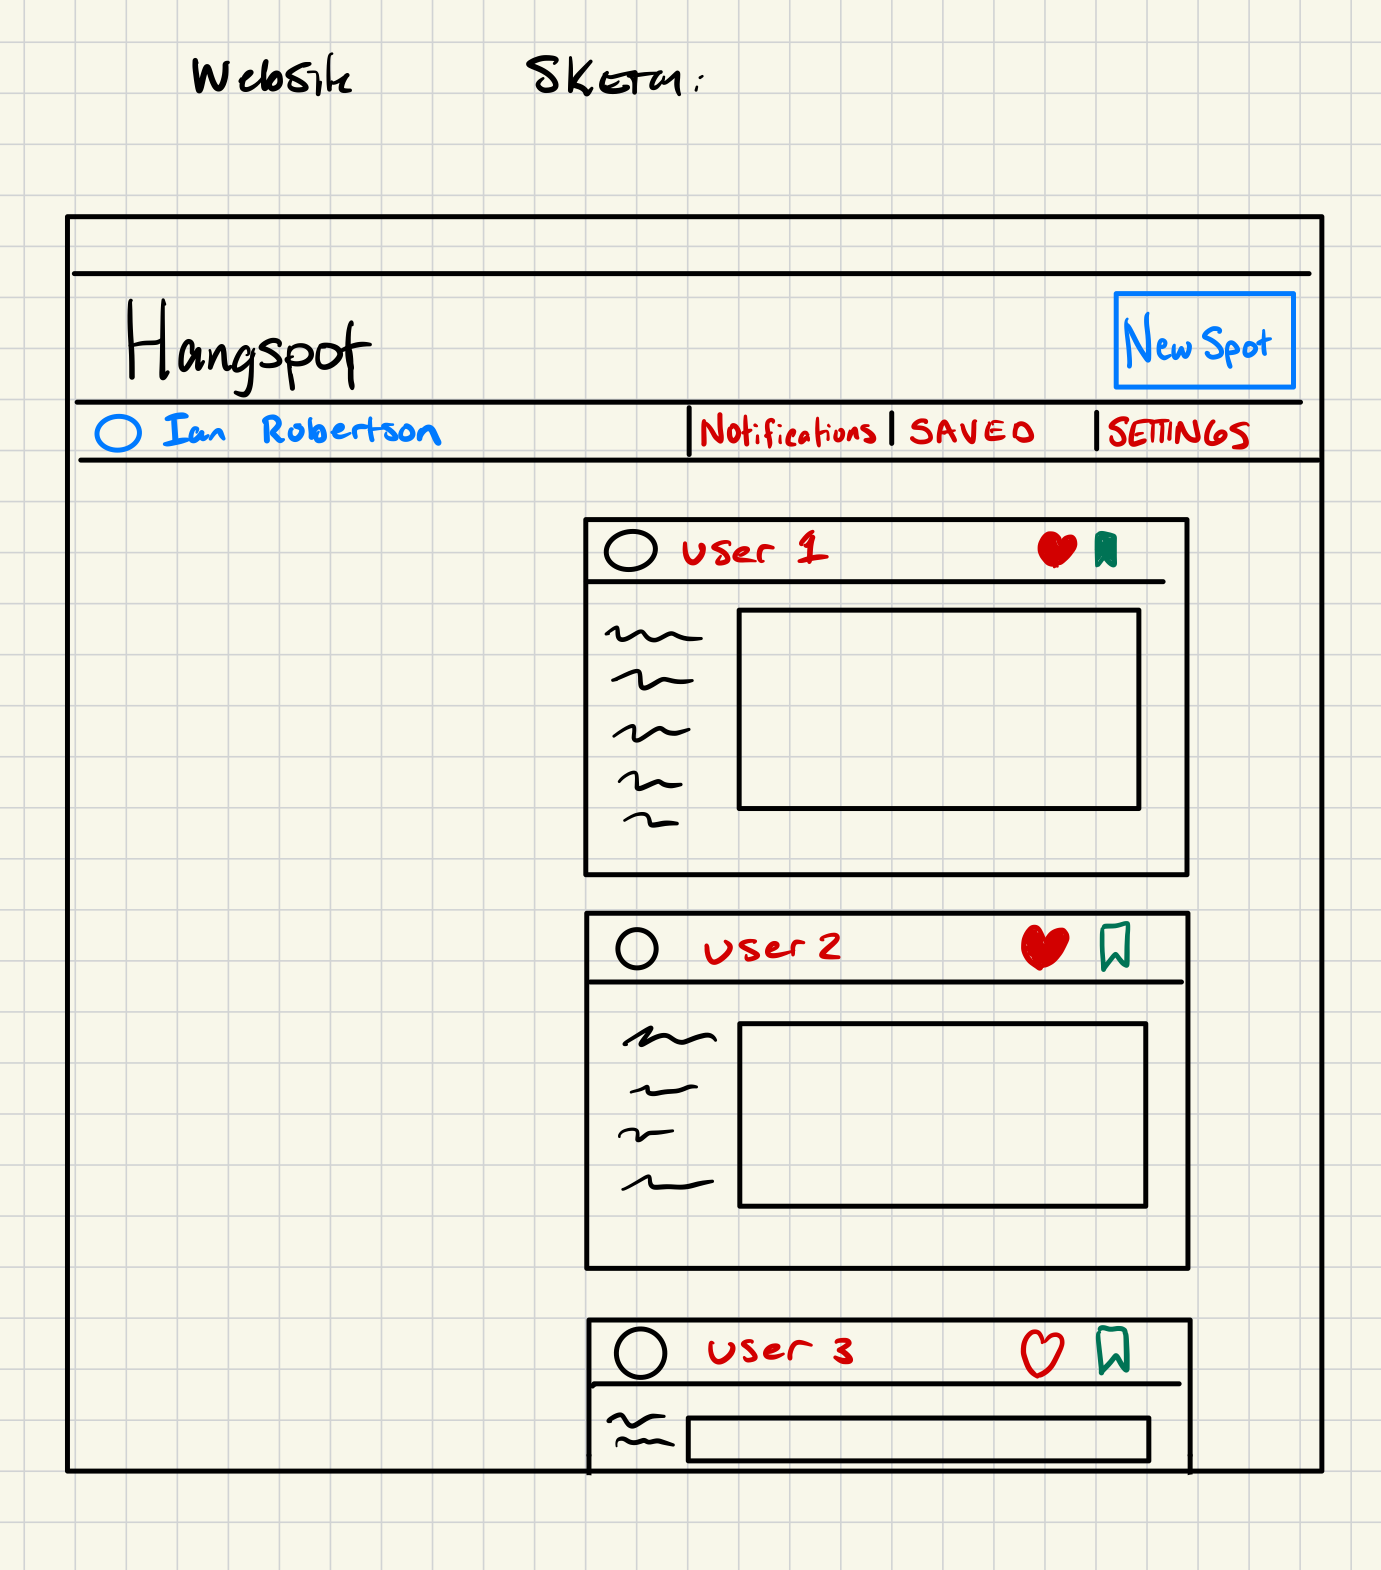 Website Sketch:
Hangspot
New Spot
Ian Robertson Notifications SAVED SETTINGS
user 1
user 2
user 3